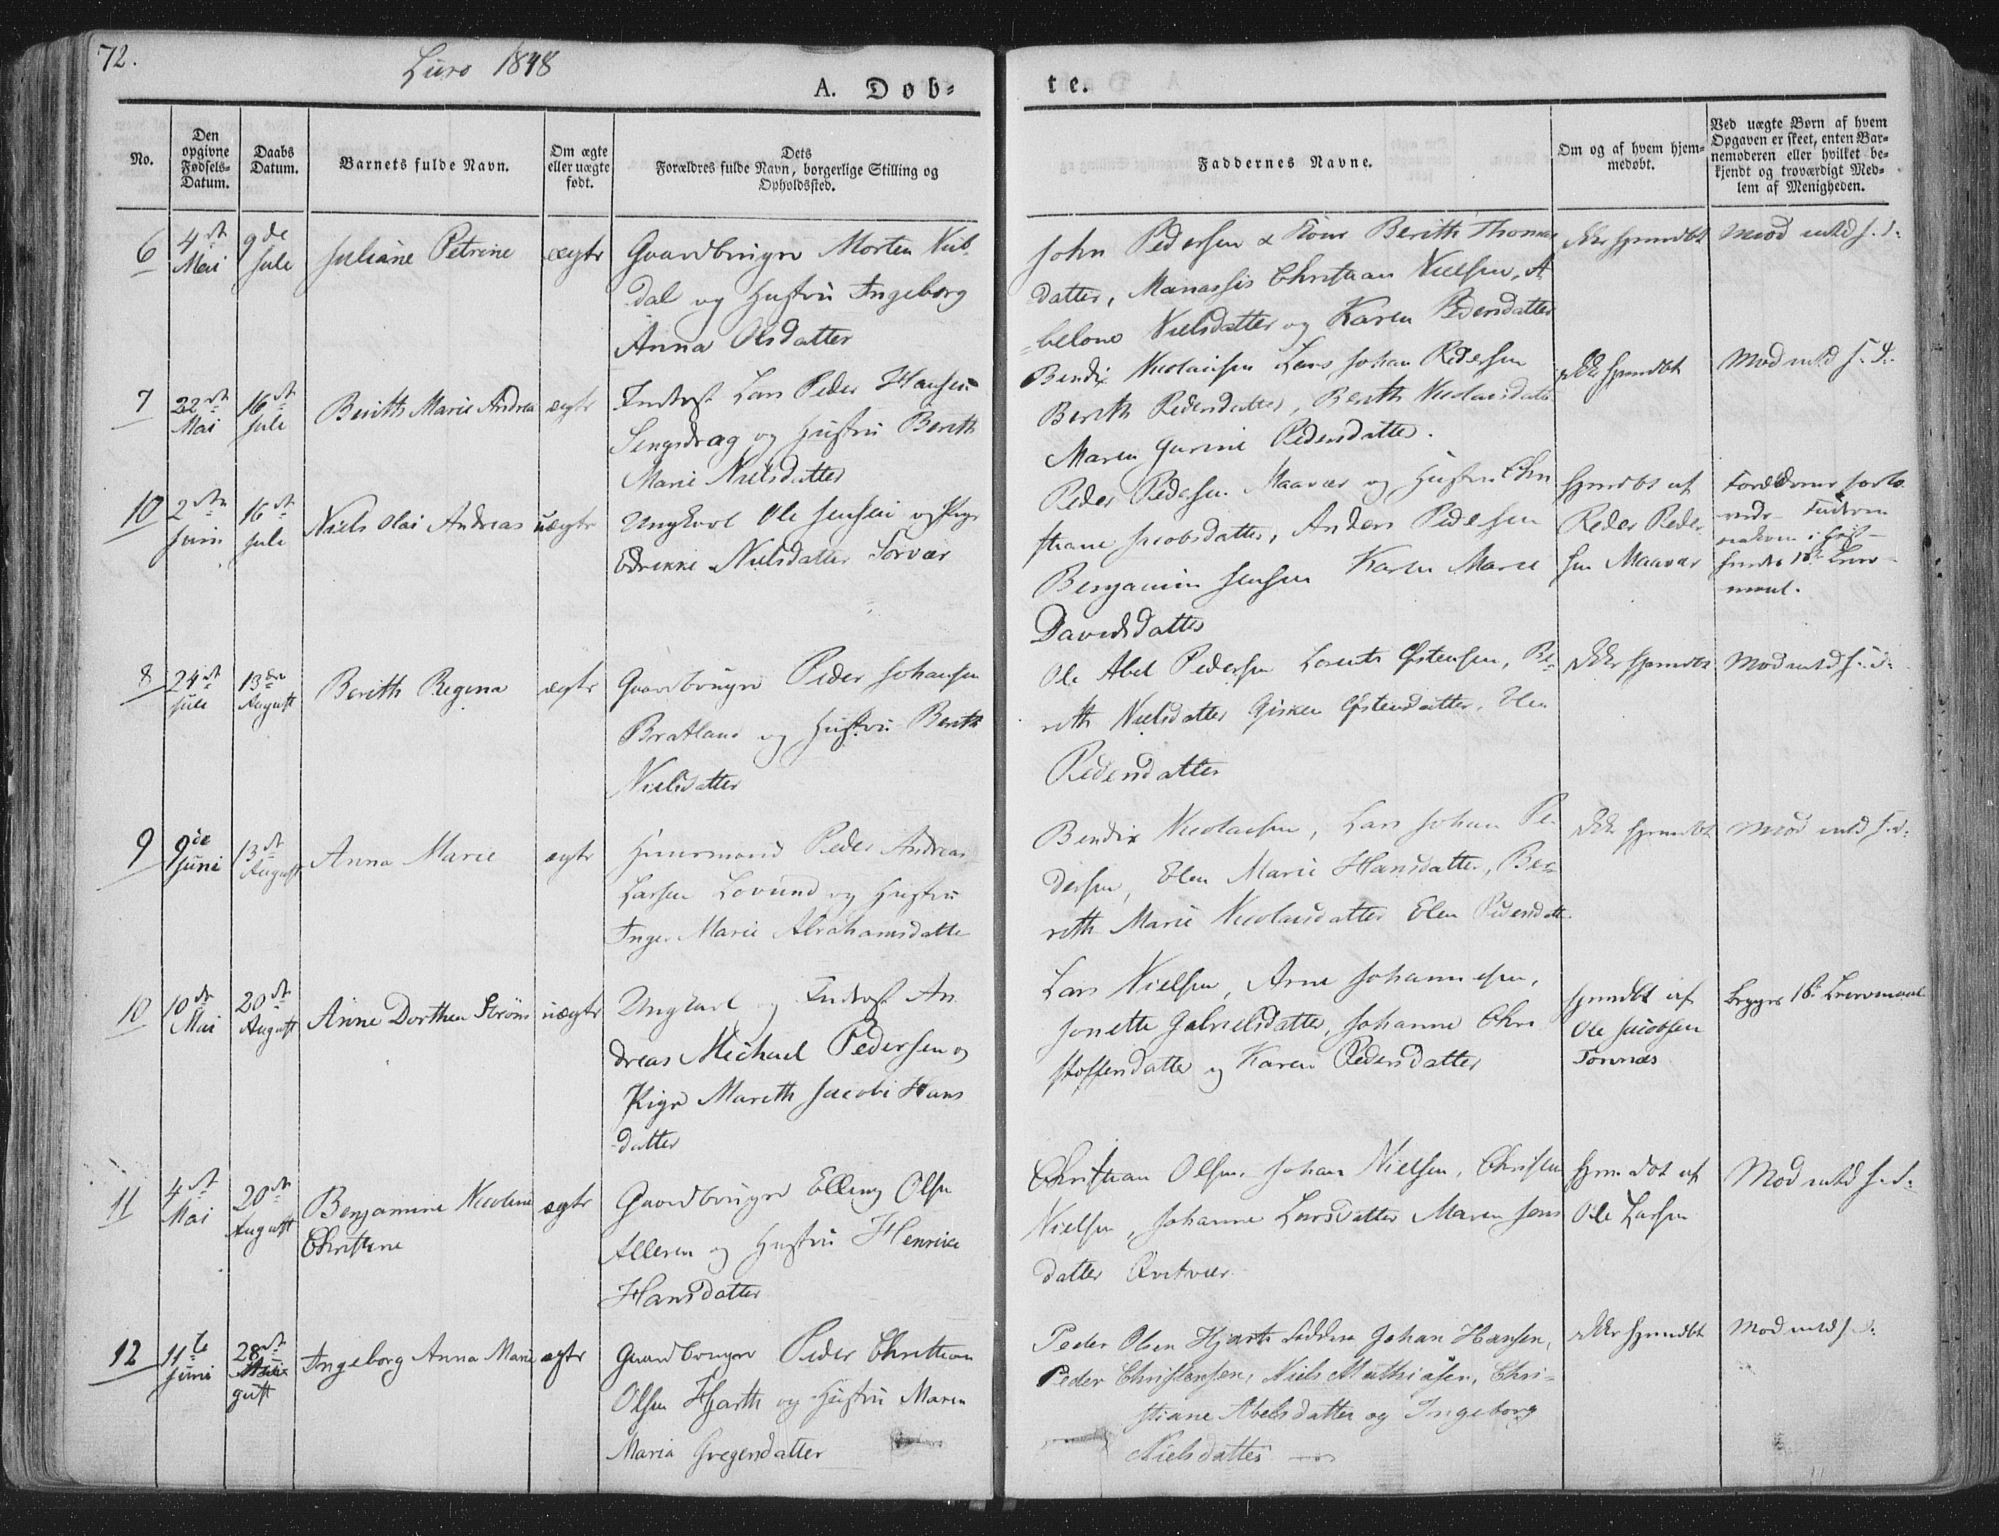 72.
Luro 1848
A. Døb-
te.
No.
Den opgivne Fødsels-Datum.
Daabs Datum.
Barnets fulde Navn.
Om ægte eller uægte født.
Dets Forældres fulde Navn, borgerlige Stilling og Opholdssted.
Faddernes Navne.
Om og af hvem hjem-medøbt.
Ved uægte Børn af hvem Opgaven er skeet, enten Bar-nemoderen eller hvilket be-kjendt og troværdigt Med-lem af Menigheden.
6
4de Mai
9de Juli
Juliane Petrine
ægte
Gaardbruger Morten
dal og Hustru Ingeborg
Anna Olsdatter
John Pedersen & Kone Berith Thomas
datter, Manassis Christian Nielsen, A
belone Nielsdatter og Karen Pedersdatter
Ikke hjemdøbt
7
22de Mai
16de Juli
Berith Marie Andrea
ægte
Inderst Lars Peder Hansen
Sengsdrag og Hustru Berith
Marie Nielsdatter
Bendix Nicolaisen Lars Johan Pedersen
Berith Pedersdatter, Berith Nicolaisdatter
Maren Gurine Pedersdatter.
Ikke hjemdøbt
10
2den Juni
16de Juli
Niels Olai Andreas
uægte
Ungkarl Ole Jensen og Pige
Edrikke Nielsdatter Sorvær
Peder Pedersen Maavær og Hustru Chri
stiane Jacobsdatter, Anders Pedersen
Benjamin Jensen Karen Marie
Davidsdatter
hjemdøbt af
Peder Peder
sen Maavær
8
24de Juli
13de August
Berith Regina
ægte
Gaardbruger Peder Johansen
Bratland og Hustru Berith
Nielsdatter
Ole Abel Pedersen Lorents Østensen, Be-
rith Nielsdatter Gisken Østensdatter, Elen
Pedersdatter
Ikke hjemdøbt
9
9de Juni
13de August
Anna Marie
ægte
Huusmand Peder Andreas
Larsen Lovund og Hustru
Inger Marie Abrahamsdatter
Bendix Nicolaisen, Lars Johan Pe
dersen, Elen Marie Hansdatter, Be-
rith Marie Nicolaisdatter Elen Pedersdatter
Ikke hjemdøbt
10
10de Mai
20de August
Anne Dorthea Strøm
uægte
Ungkarl og Inderst An
dreas Michael Pedersen og
Pige Mareth Jacobi Hans
datter
Lars Nielsen, Arne Johannesen,
Jonette Gabrielsdatter, Johanne Chri
stoffersdatter og Karen Pedersdatter
hjemdøbt af
Ole Jacobsen
Tonnes
Begges 1ste Leiermaal
11
4de Mai
20de August
Benjamine Nicoline
Christine
ægte
Gaardbruger Elling Olsen
Alleren og Hustru Henrica
Hansdatter
Christian Olsen, Johan Nielsen, Christen
Nielsen, Johanne Larsdatter Maren Jens
datter Qvitvær
hjemdøbt af
Ole Larsen
12
11te Juni
28de August
Ingeborg Anna Marie
ægte
Gaardbruger Peder Christian
Olsen Hjarth og Hustru Maren
Maria Gregersdatter
Peder Olsen Hjarth Johan Hansen,
Peder Christensen, Niels Mathiasen, Chri-
stiane Abelsdatter og Ingeborg
Nielsdatter
Ikke hjemdøbt